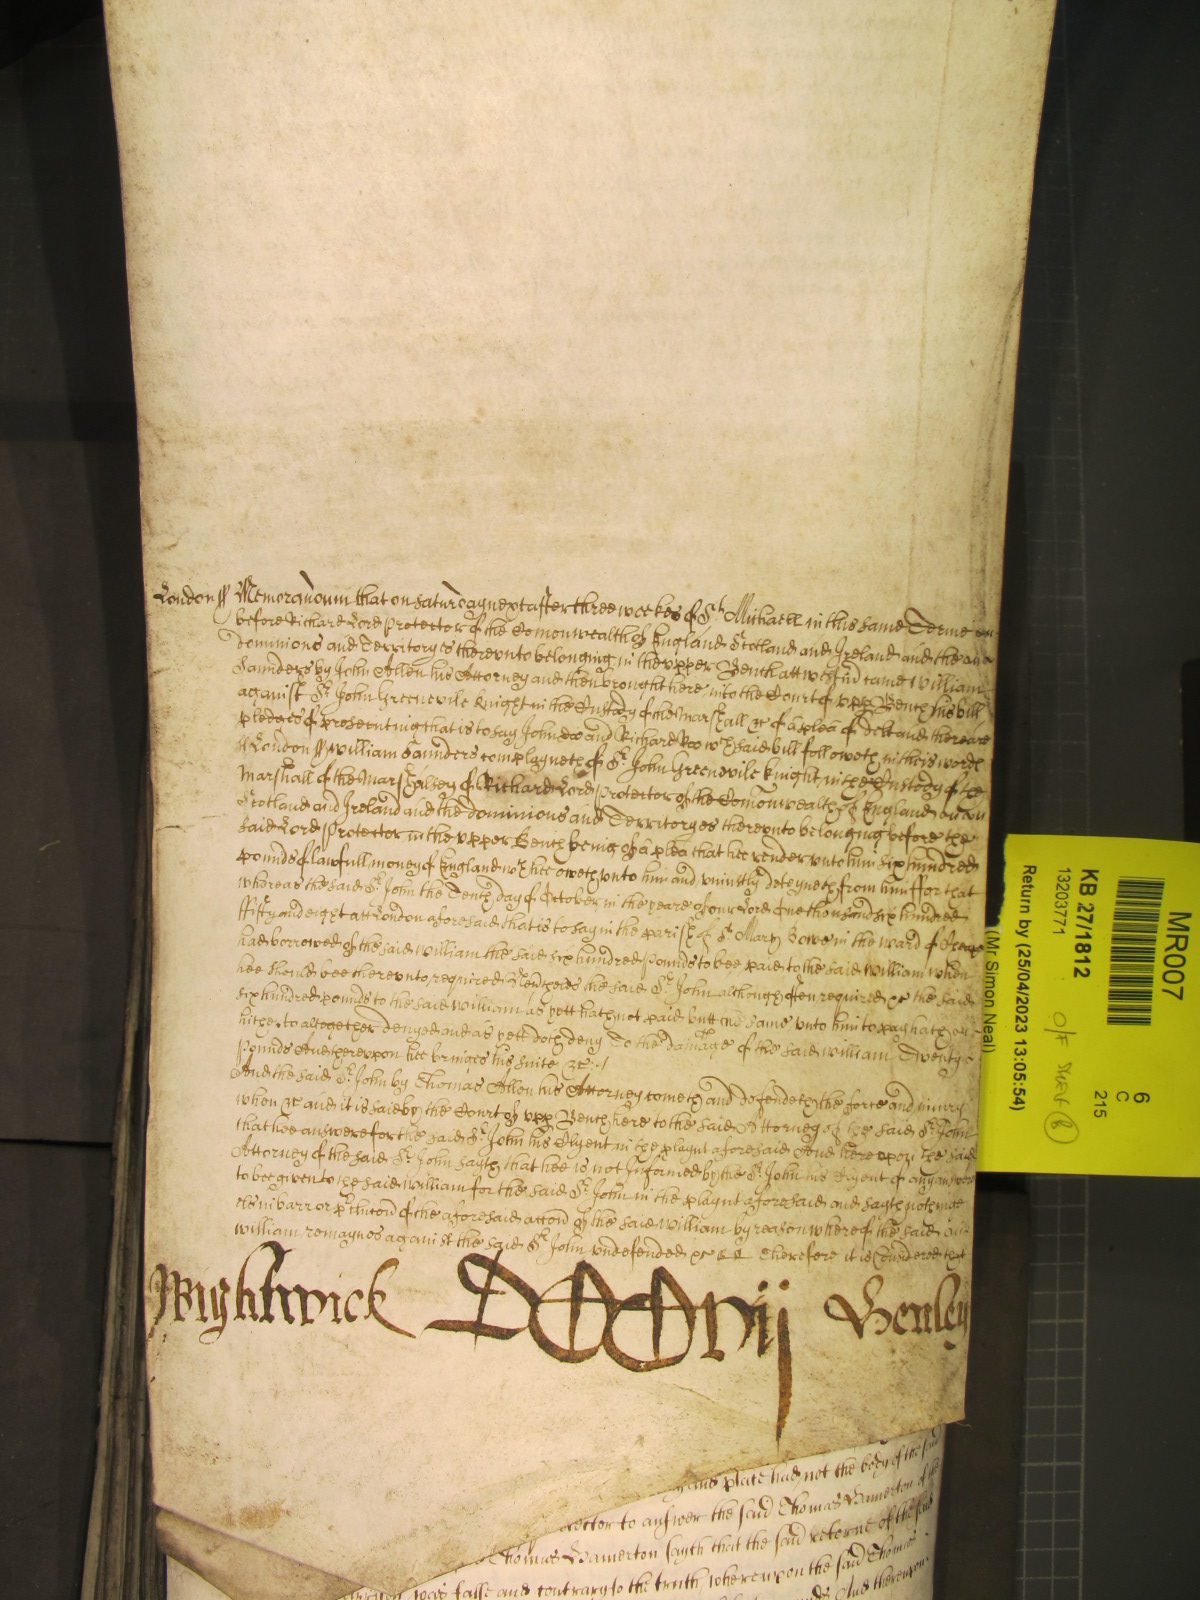 London ss Memorandum that on Saturday next after three weekes of St Michaell in this same Terme
before Richard Lord Protector of the Comonwealth of England Scotland and Ireland and the
Dominions and Territoryes therevnto belonging in the vpper Bench att came William
Saunders by John Allen his Attorney and then brought here into the Court of vpp Bench his bill
against Sr John Greenevile Knight in the Custody of the Marshall &c of a plea of Debt and there are
pledges of prosecuting that is to say John doo and Richard Roo wch said bill followeth in theis words
London ss William Saunders complayneth of Sr John Greenevile Knight in the Custody of the
Marshall of the Marshalsey of Richard Lord Protector of the Comonwealth of England
Scotland and Ireland and the dominions and Territoryes therevnto belonging before the
said Lord Protector in the vpper Bench being of a plea that hee render vnto him six hundred
pounds of lawfull money of England wch hee oweth vnto him and vniustly deteyneth from him ffor that
whereas the said Sr John the Tenth day of October in the yeare of our Lord One thousand six hundred
ffifty and eight att London aforesaid that is to say in the parish of St Mary Bowe in the ward of
had borrowed of the said William the said six hundred pounds to bee paid to the said William when
hee should bee therevnto required Neverthelesse the said Sr John although often required &c the said
six hundred pounds to the said William as yett hath not paid butt the same vnto him to pay hath
hitherto altogether denyed and as yett doth deny To the damage of the said William Twenty
pounds And therevpon hee bringes his suite &c
And the said Sr John by Thomas Allen his Attorney cometh and defendeth the force and iniury
when &c and it is said by the Court of vpp Bench here to the said Attorney of the said Sr John
that hee answere for the said Sr John his Clyent in the playnt aforesaid And herevpon the said
Attorney of the said Sr John sayth that hee is not Informed by the Sr John his Clyent of any answere
to bee given to the said William for the said Sr John in the playnt aforesaid and sayth nothinge
els in barr or of the aforesaid accon of the said William by reason whereof the said
William remaynes against the said Sr John vndefended &c Therefore it is Considered that
Wightwick Henley
place had not the body of the said
to answer the said Thomas Bamerton of the
Thomas Bamerton sayth that the said retorne of the said
was false and contrary to the truth, wherevpon the said Thomas
And therevpon
MR007
6
C
215
KB 27/1812
13203771
O/F
8
Return by (25/04/2023 13:05:54)
(Mr Simon Neal)